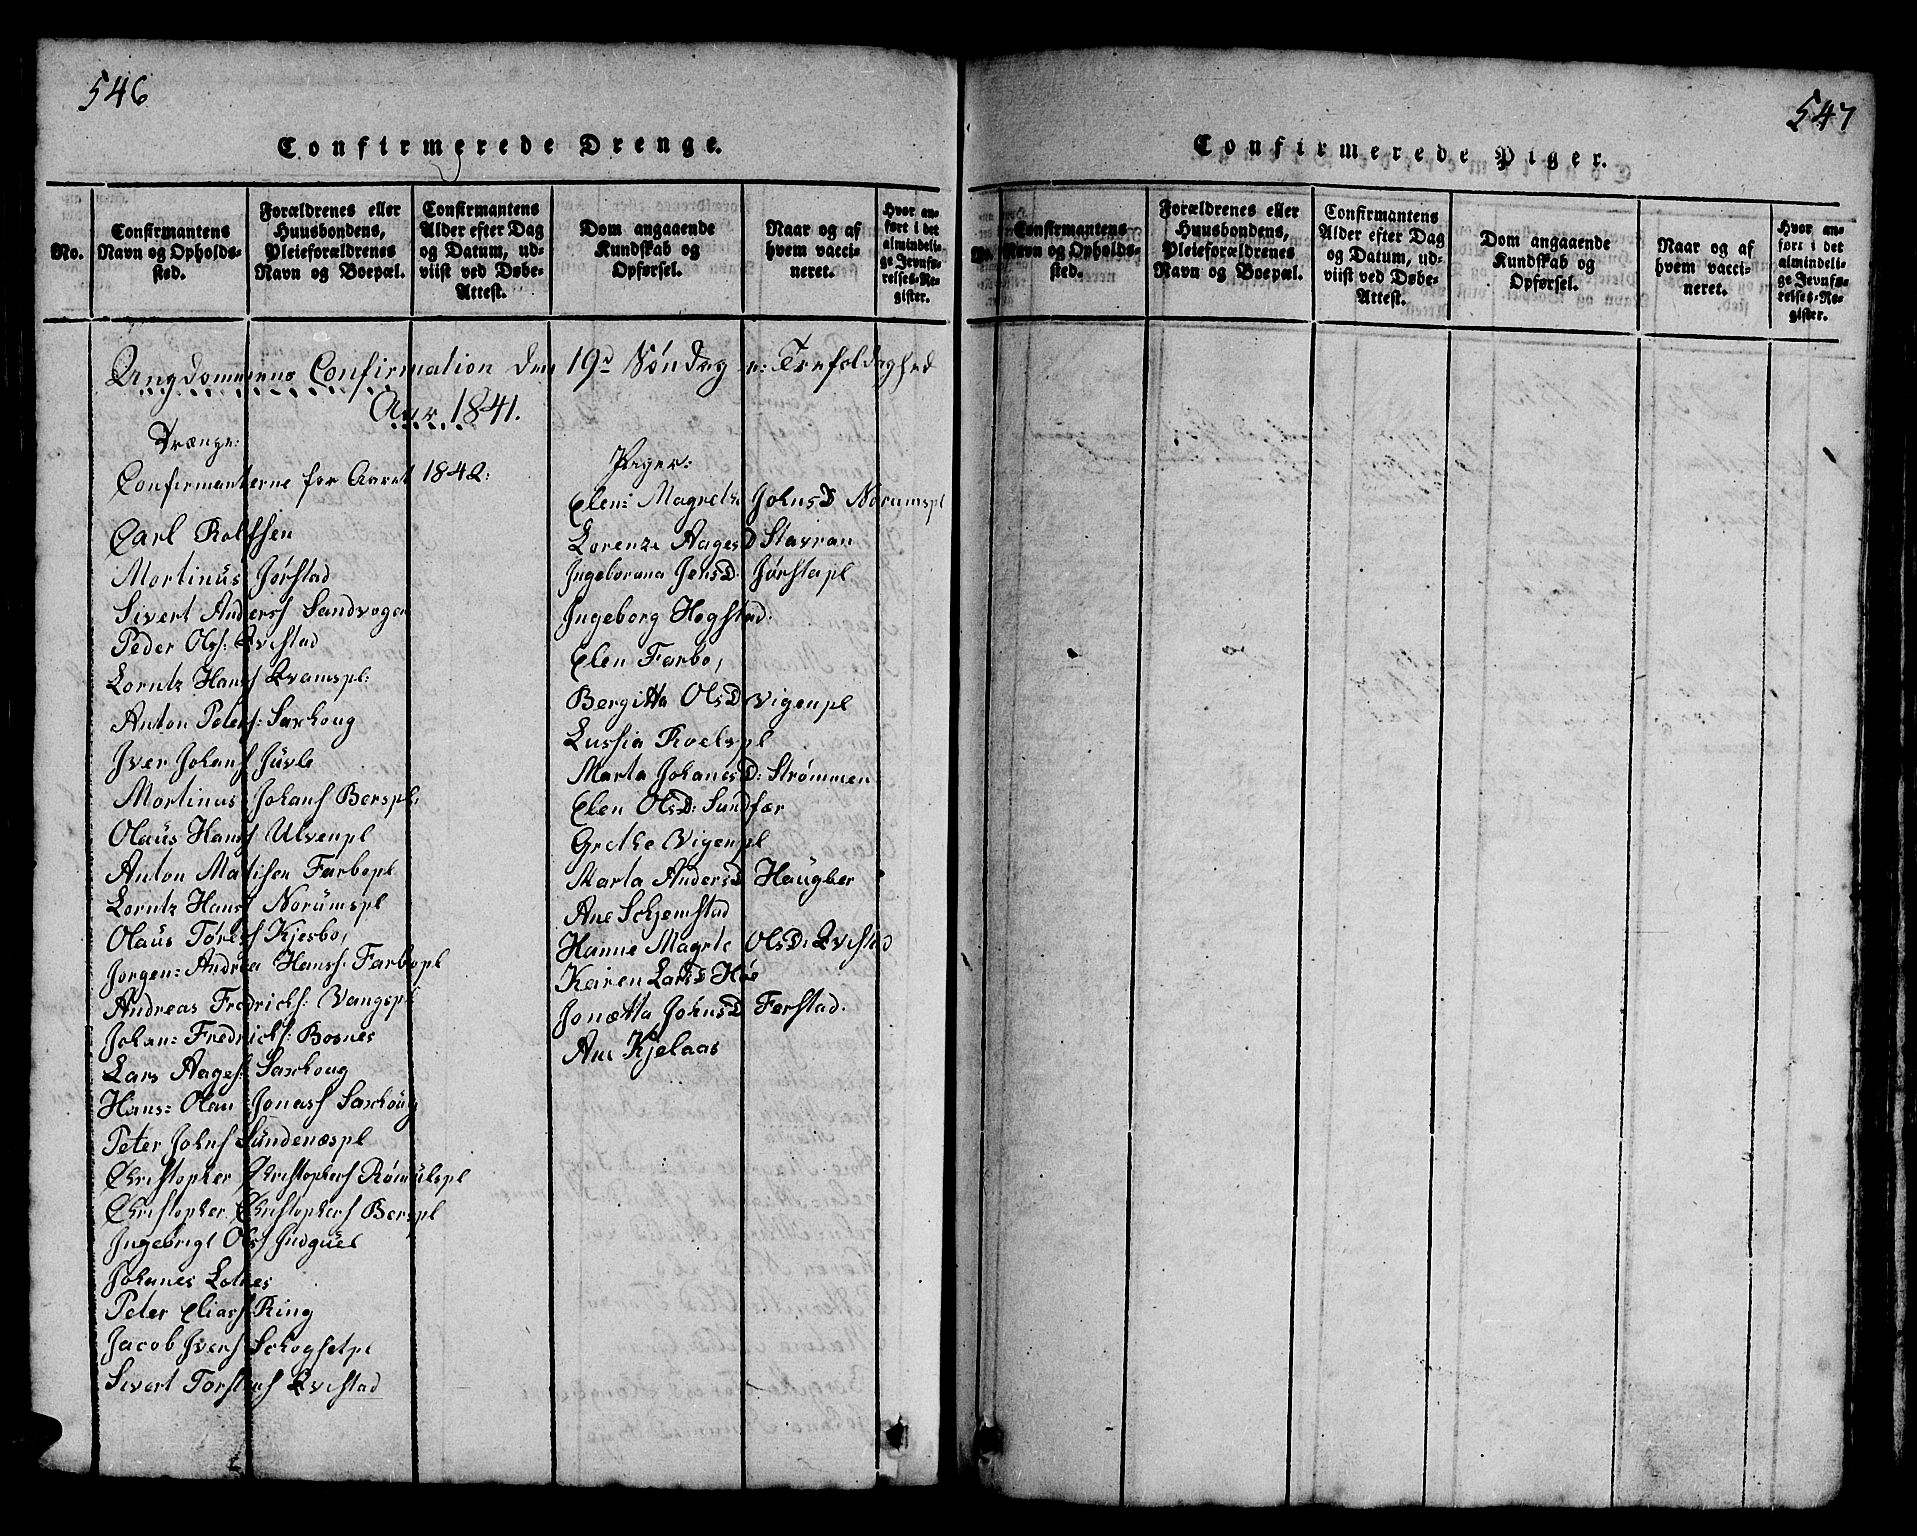 546
Confirmerede Drenge.
No.
Confirmantens
Navn og Opholds-
sted.
Forældrenes eller
Huusbondens,
Pleieforældrenes
Navn og Boepæl.
Confirmantens
Alder efter Dag
og Datum, ud-
viist ved Døbe-
Attest.
Dom angaaende
Kundskab og
Opførsel.
Naar og af
hvem vacci-
neret.
Hvor an-
ført i det
almindeli-
ge Jevnfø-
relses-Re-
gister.
Ungdommens Confirmation den 19d Søndag e: Trefoldighed
Aar 1841.
Drænge:
Confirmanterne for Aaret 1842:
Carl Rolfsen
Mortinus Jørstad
Sivert Anders Sandvogen
Peder Ols: Qvistad
Lorntz Hans Qvamspl:
Anton Peters: Saxhoug
Iver Johans Jüvle
Mortinus Johans Berspl:
Olaüs Hans Ulvenpl
Anton Matisen Farbopl
Lorntz Hans Norümspl
Olaüs Tøres Kjesbo,
Jorgen: Andrea Hanss: Farbopl
Andreas Fredrichs: Vangspl
Johan: Fredrichs: Bosnes
Lars Aages: Saxhoug
Hans: Olau Jonass Saxhoüg
Peter Johns Sündenæspl
Christopher Christophers Rømülspl
Christopher Christophers Berspl
Ingebrigt Ols Jndgüel
Johanes Lotnes
Peter Elias Ring
Jacob Ivers Schogsetpl
Sivert Torstens Qvistad
Piger:
Elen: Magrethe JohnsD Norumspl
Lorenze AagesD Stavran
Ingeborana JensD: Jørstapl
Ingeborg Hegstad:
Elen Farbo,
Bergitta OlsD Vigenpl
Lussia Roelspl
Marta JohanesD: Strømmen
Elen OlsD: Sundfær
Grethe Vigenpl
Marta AndersD Haügber
Ane Schjemstad
Hanne Magrte OlsD: Qvistad
Keiren LarsD Høe
Jonætta JohnsD Ferstad.
Ane Kjelaas
547
Confirmerede Piger.
No.
Confirmantens
Navn og Opholds-
sted.
Forældrenes eller
Huusbondens,
Pleieforældrenes
Navn og Boepæl.
Confirmantens
Alder efter Dag
og Datum, ud-
viist ved Døbe-
Attest.
Dom angaaende
Kundskab og
Opførsel.
Naar og af
hvem vacci-
neret.
Hvor an-
ført i det
almindeli-
ge Jevnfø-
relses-Re-
gister.